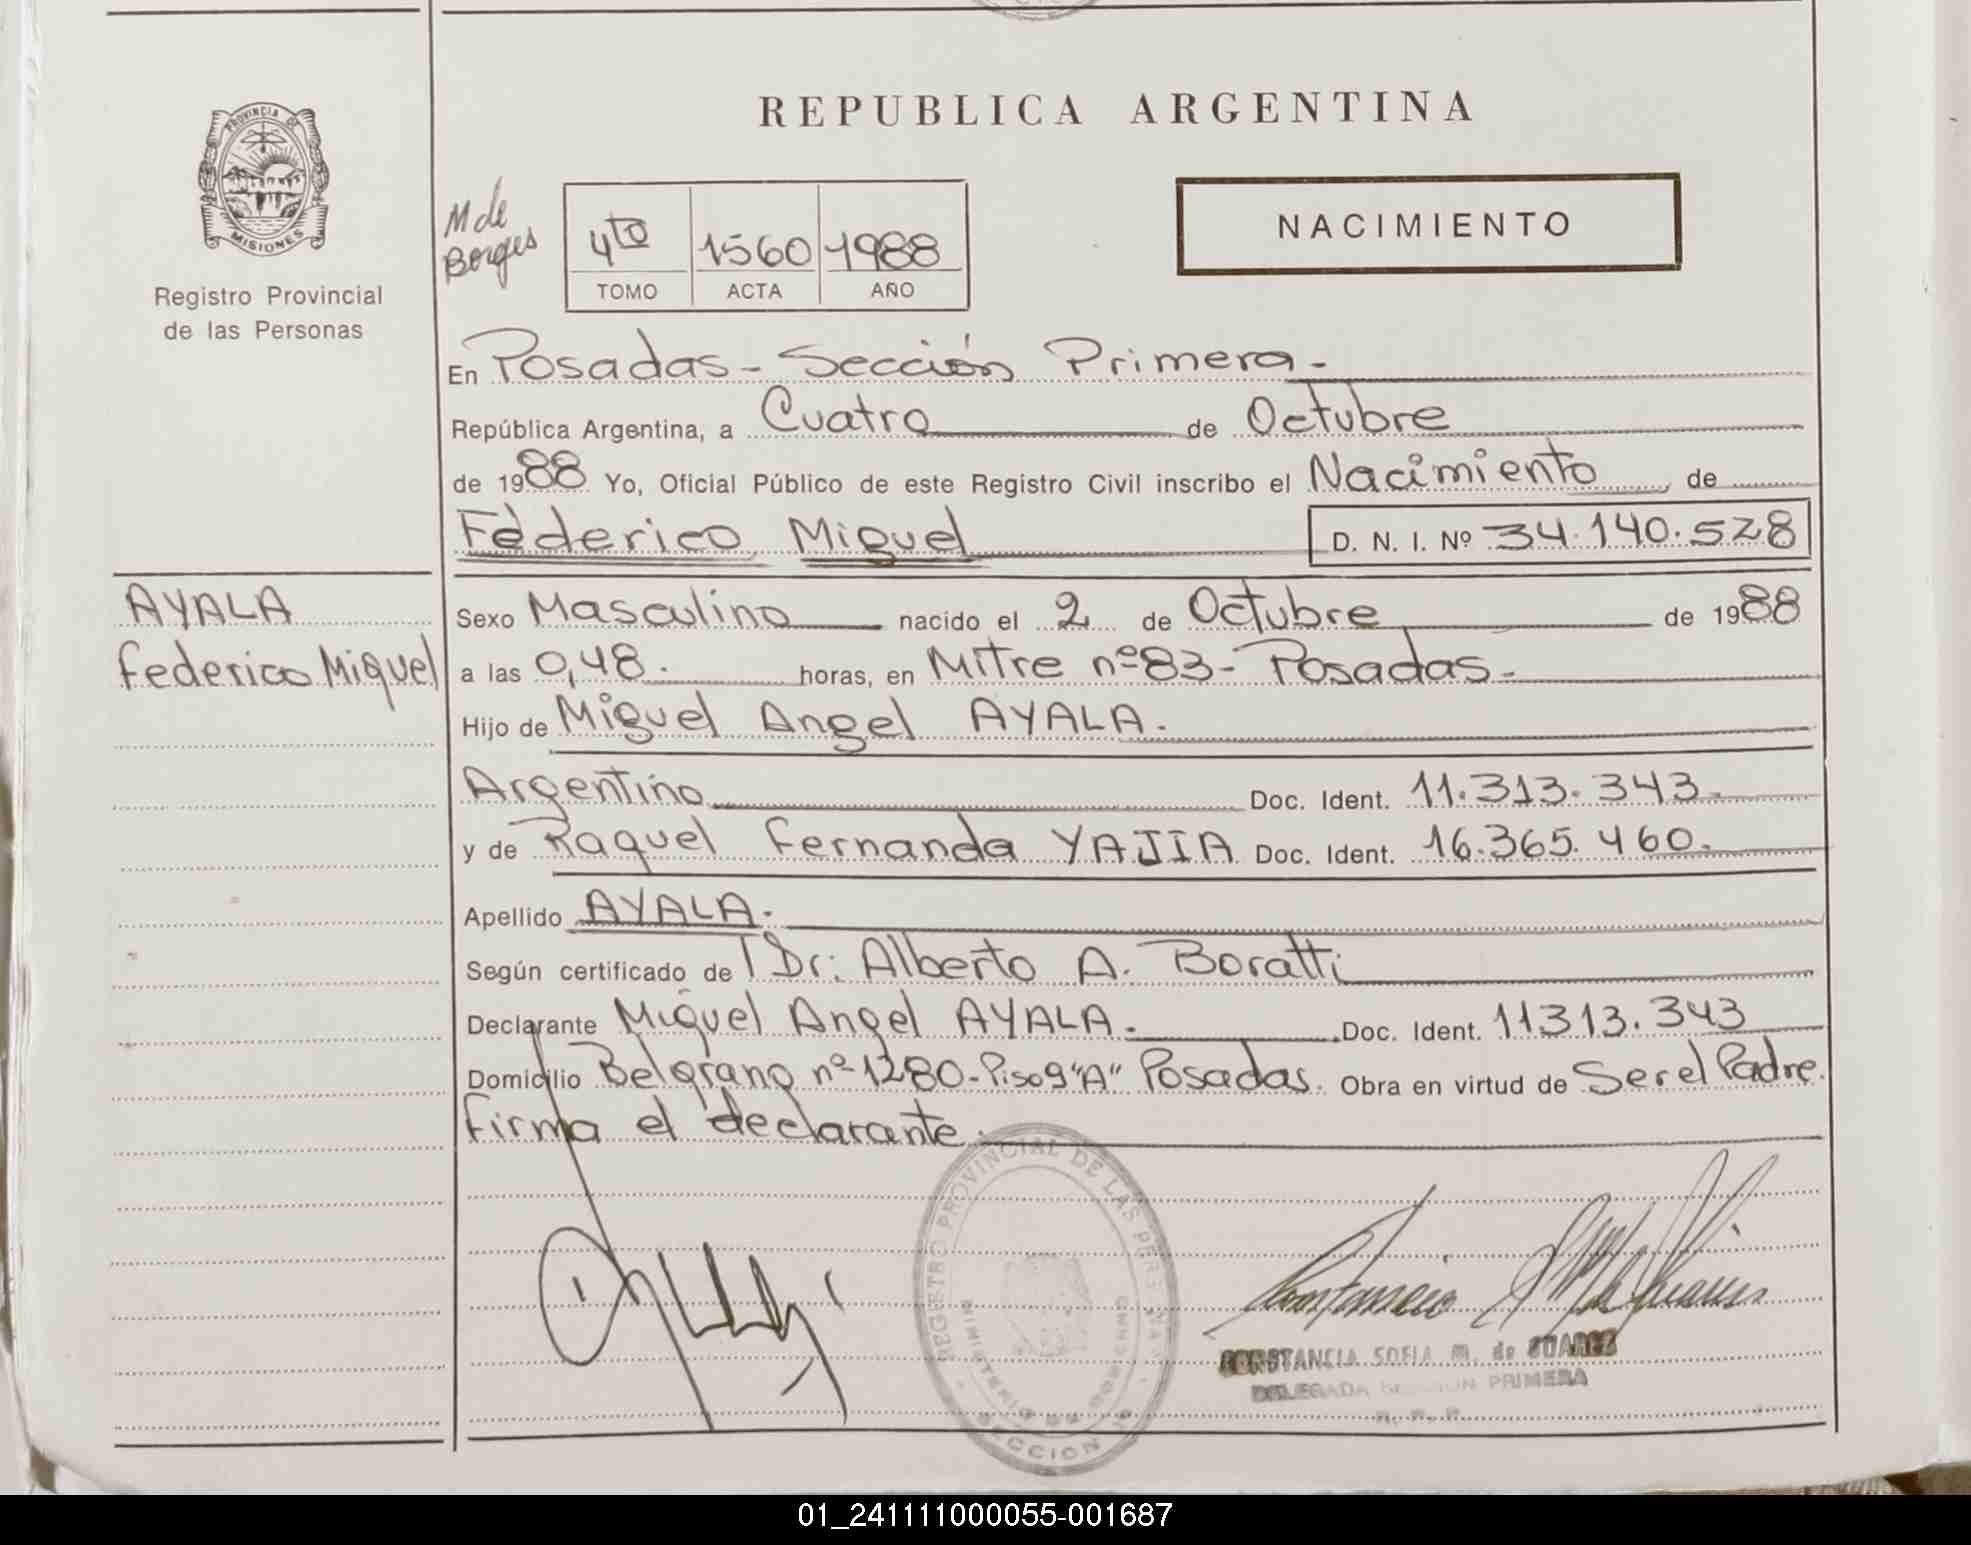 REPUBLICA ARGENTINA
PROVINCIA DE
MISIONES
Registro Provincial
de las Personas
M de
Borges
4to 1560 1988
TOMO ACTA AÑO
NACIMIENTO
En Posadas - Sección Primera -
República Argentina, a Cuatro de Octubre
de 1988 Yo, Oficial Público de este Registro Civil inscribo el Nacimiento de
Federico Miguel D. N. I. Nº 34.140.528
AYALA
Federico Miguel
Sexo Masculino nacido el 2 de Octubre de 1988
a las 0,48. horas, en Mitre nº 83 - Posadas -
Hijo de Miguel Angel AYALA.
Argentino Doc. Ident. 11.313.343.
y de Raquel Fernanda YAJIA Doc. Ident. 16.365.460.
Apellido AYALA.
Según certificado de Dr. Alberto A. Boratti
Declarante Miguel Angel AYALA. Doc. Ident. 11.313.343
Domicilio Belgrano nº 1280 - Piso 9 "A" Posadas. Obra en virtud de Ser el Padre.
Firma el declarante.
REGISTRO PROVINCIAL DE LAS PERSONAS
MINISTERIO DE GOBIERNO
SECCION
CONSTANCIA SOFIA M. de SUAREZ
DELEGADA SECCION PRIMERA
01_241111000055-001687